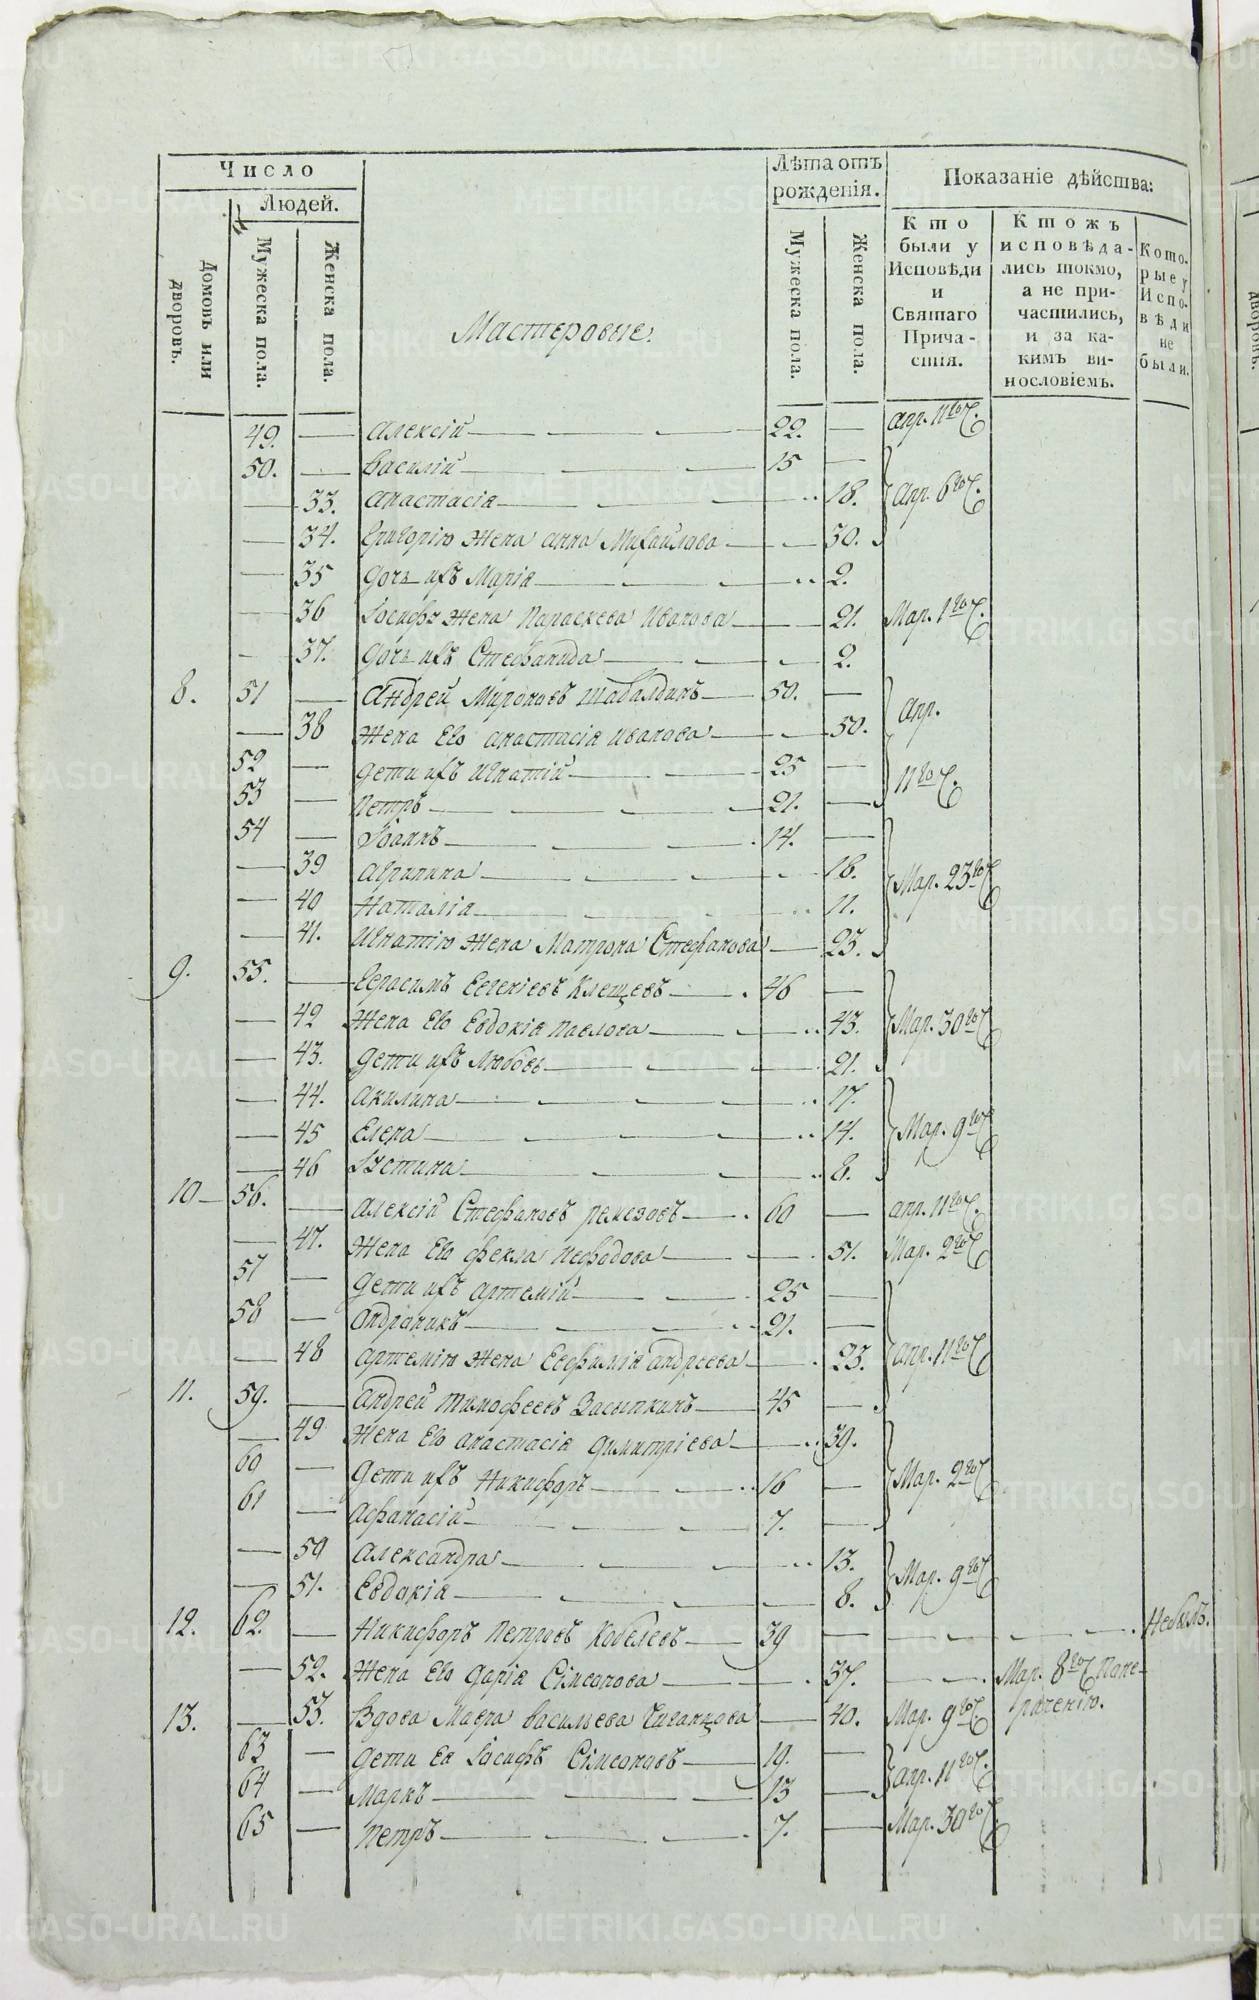 Число
Людей.
Домовъ или дворовъ.
Мужеска пола.
Женска пола.
Мастеровые.
Лѣта отъ рожденія.
Мужеска пола.
Женска пола.
Показаніе дѣйства:
Кто были у Исповѣди и Святаго Причастія.
Ктожъ исповѣдались токмо, а не причастились, и за какимъ винословіемъ.
Которые у Исповѣди не были.
49. — Алексій — 22. — Апр. 11го Ч.
50. — Василій — 15 —
— 33. Анастасія — 18. Апр. 6го Ч.
— 34. Григорію жена Анна Михайлова — 30.
— 35 Дочь ихъ Марія — 2.
— 36 Іосифу жена Параскева Иванова — 21. Мар. 1го Ч.
— 37. Дочь ихъ Стефанида — 2.
8. 51 — Андрей Мироновъ Шабалдинъ — 50. — Апр.
— 38 Жена Его Анастасія Иванова — 50.
52 — Дети ихъ Игнатій — 25 — 11го Ч.
53 — Петръ — 21. —
54 — Іоаннъ — 14. —
— 39 Агрипина — 18. Мар. 23го Ч.
— 40 Наталія — 11.
— 41. Игнатію жена Матрона Стефанова — 23.
9. 55. — Герасимъ Евгеніевъ Клещевъ — 46 —
— 42 Жена Его Евдокія Павлова — 43. Мар. 30го Ч.
— 43. Дети ихъ Любовь — 21.
— 44. Акилина — 17.
— 45 Елена — 14. Мар. 9го Ч.
— 46 Іустина — 8.
10 — 56. — Алексій Стефановъ Ремезовъ — 60 — Апр. 11го Ч.
— 47. Жена Его Фекла Нефодова — 51. Мар. 2го Ч.
57 — Дети ихъ Артемій — 25 —
58 — Андроникъ — 21. —
— 48 Артемію жена Евфимія Андреева — 23. Апр. 11го Ч.
11. 59. — Андрей Тимофеевъ Засыпкинъ — 45 —
— 49 Жена Его Анастасія Димитріева — 39.
60 — Дети ихъ Никифоръ — 16 — Мар. 2го Ч.
61 — Афанасій — 7. —
— 50 Александра — 13. Мар. 9го Ч.
— 51. Евдокія — 8.
12. 62. — Никифоръ Петровъ Кобелевъ — 39 — Небылъ.
— 52. Жена Его Дарія Сімеонова — 37. — Мар. 8го Ч
13. — 53. Вдова Мавра Васильева Чиганцова — 40. Мар. 9го Ч
63 — Дети Ея Іосифъ Сімеоновъ — 19. — Апр. 11го Ч.
64 — Маркъ — 13 —
65 — Петръ — 7. — Мар. 30го Ч.
METRIKI.GASO-URAL.RU